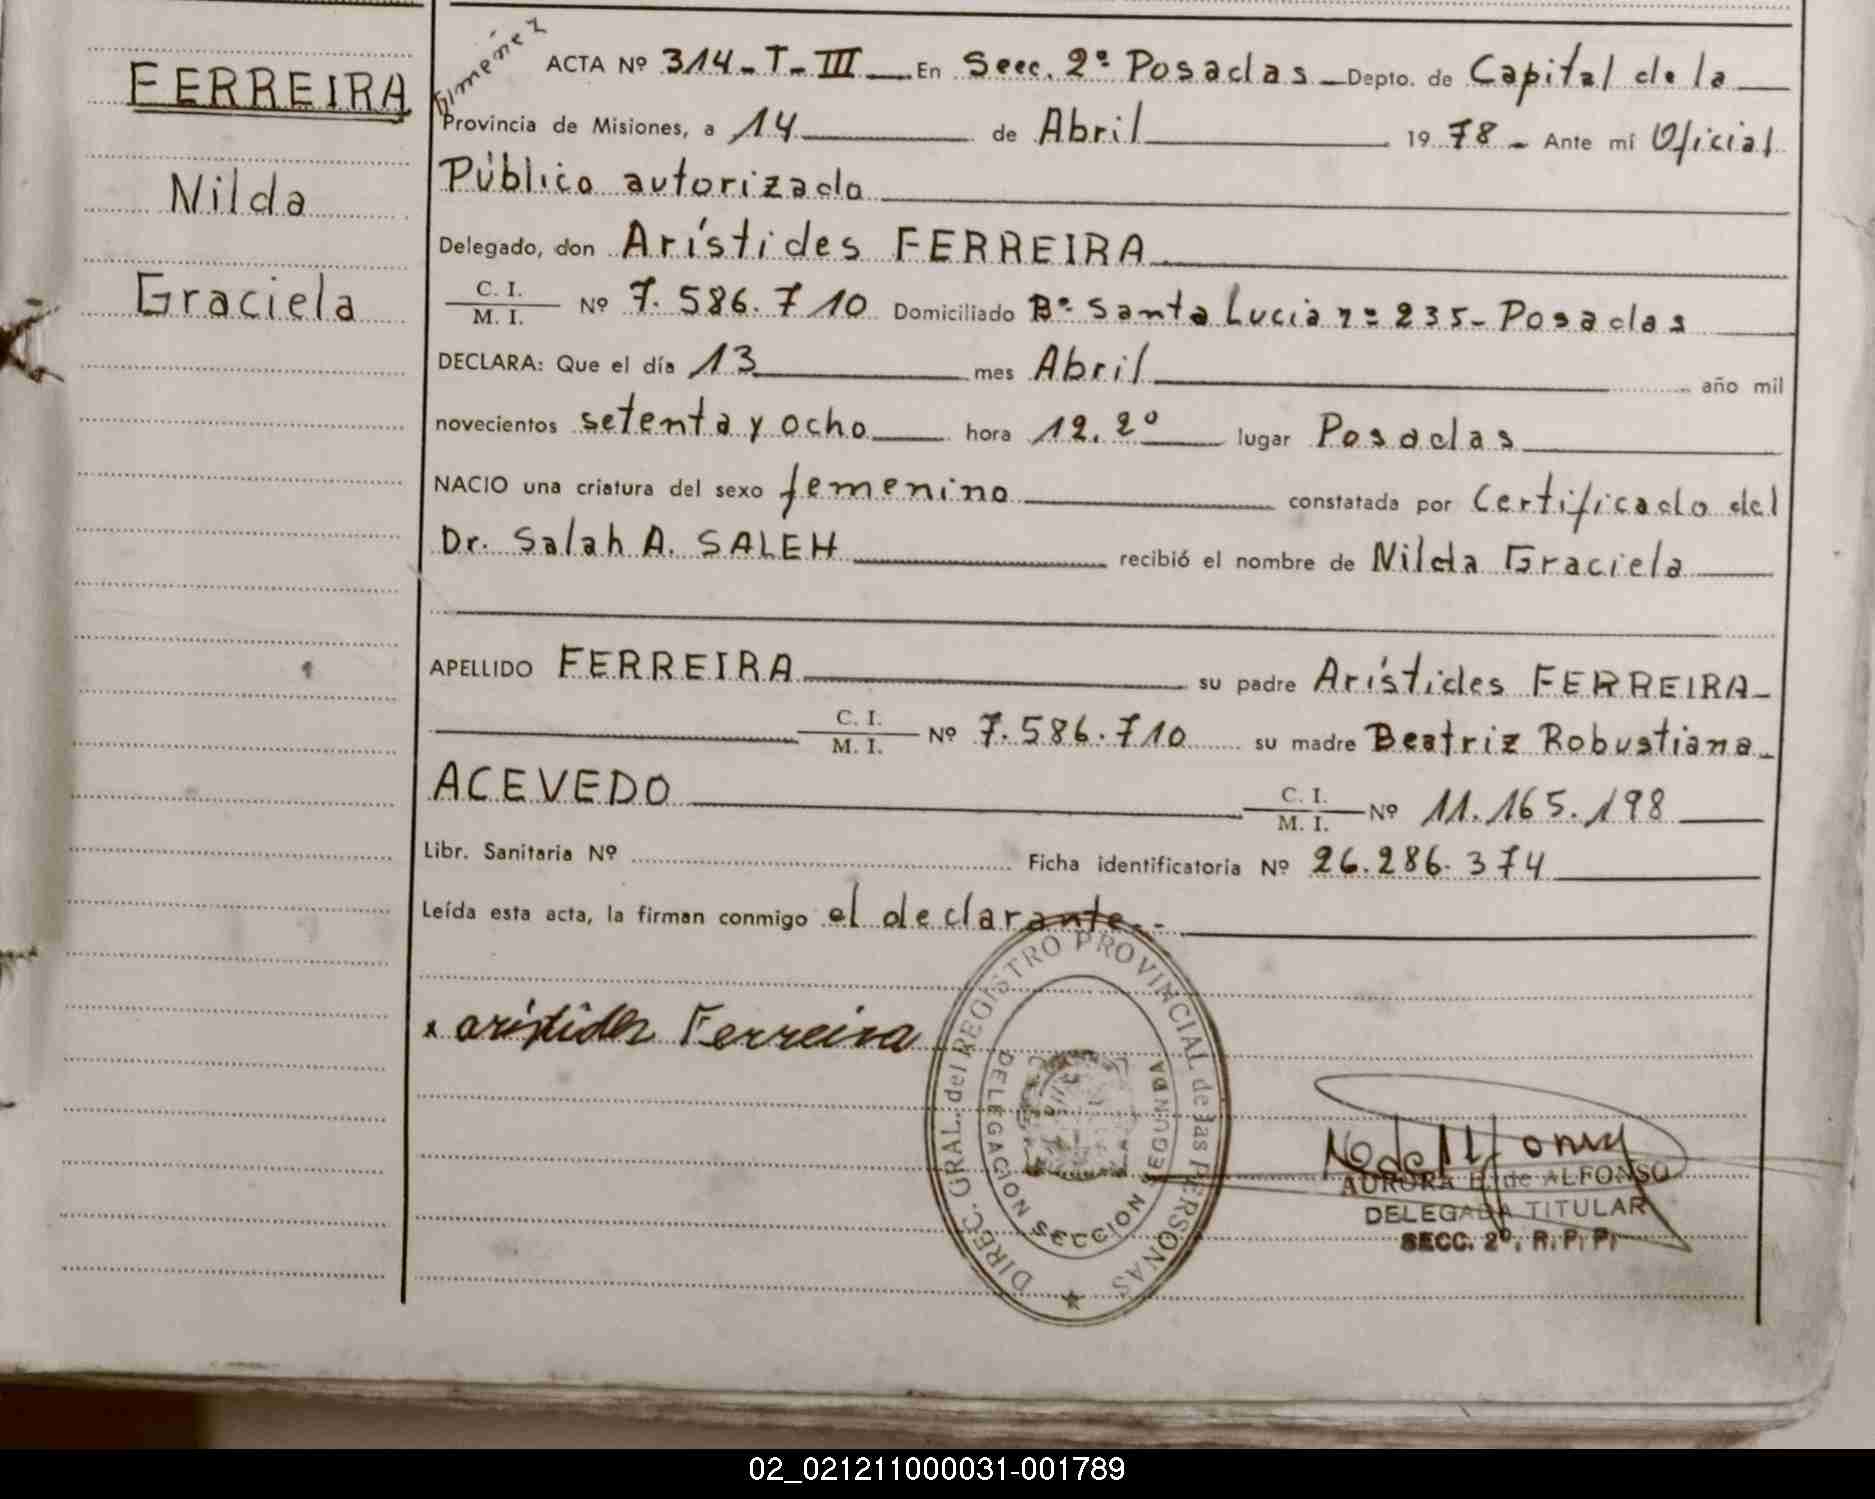 FERREIRA
Nilda
Graciela
Gimenez
ACTA Nº 314-T-III En Secc. 2º Posadas Depto. de Capital de la
Provincia de Misiones, a 14 de Abril 1978 - Ante mí Oficial
Público autorizado
Delegado, don Arístides FERREIRA
C. I.
M. I. Nº 7.586.710 Domiciliado Bº Santa Lucia nº 235 - Posadas
DECLARA: Que el día 13 mes Abril año mil
novecientos setenta y ocho hora 12.20 lugar Posadas
NACIO una criatura del sexo femenino constatada por Certificado del
Dr. Salah A. SALEH recibió el nombre de Nilda Graciela
APELLIDO FERREIRA su padre Arístides FERREIRA -
C. I.
M. I. Nº 7.586.710 su madre Beatriz Robustiana -
ACEVEDO C. I.
M. I. Nº 11.165.198
Libr. Sanitaria Nº Ficha identificatoria Nº 26.286.374
Leída esta acta, la firman conmigo el declarante.-
x arístides Ferreira
DIREC. GRAL. del REGISTRO PROVINCIAL de las PERSONAS
DELEGACION SECCION SEGUNDA
AURORA de ALFONSO
DELEGADA TITULAR
SECC. 2º. R. P. P.
02_021211000031-001789